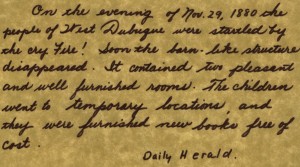 On the evening of Nov. 29, 1880 the
people of West Dubuque were startled by
the cry Fire! Soon the barn-like structure
disappeared. It contained two pleasant
and well furnished rooms. The children
went to temporary locations, and
they were furnished new books free of
cost.
Daily Herald.